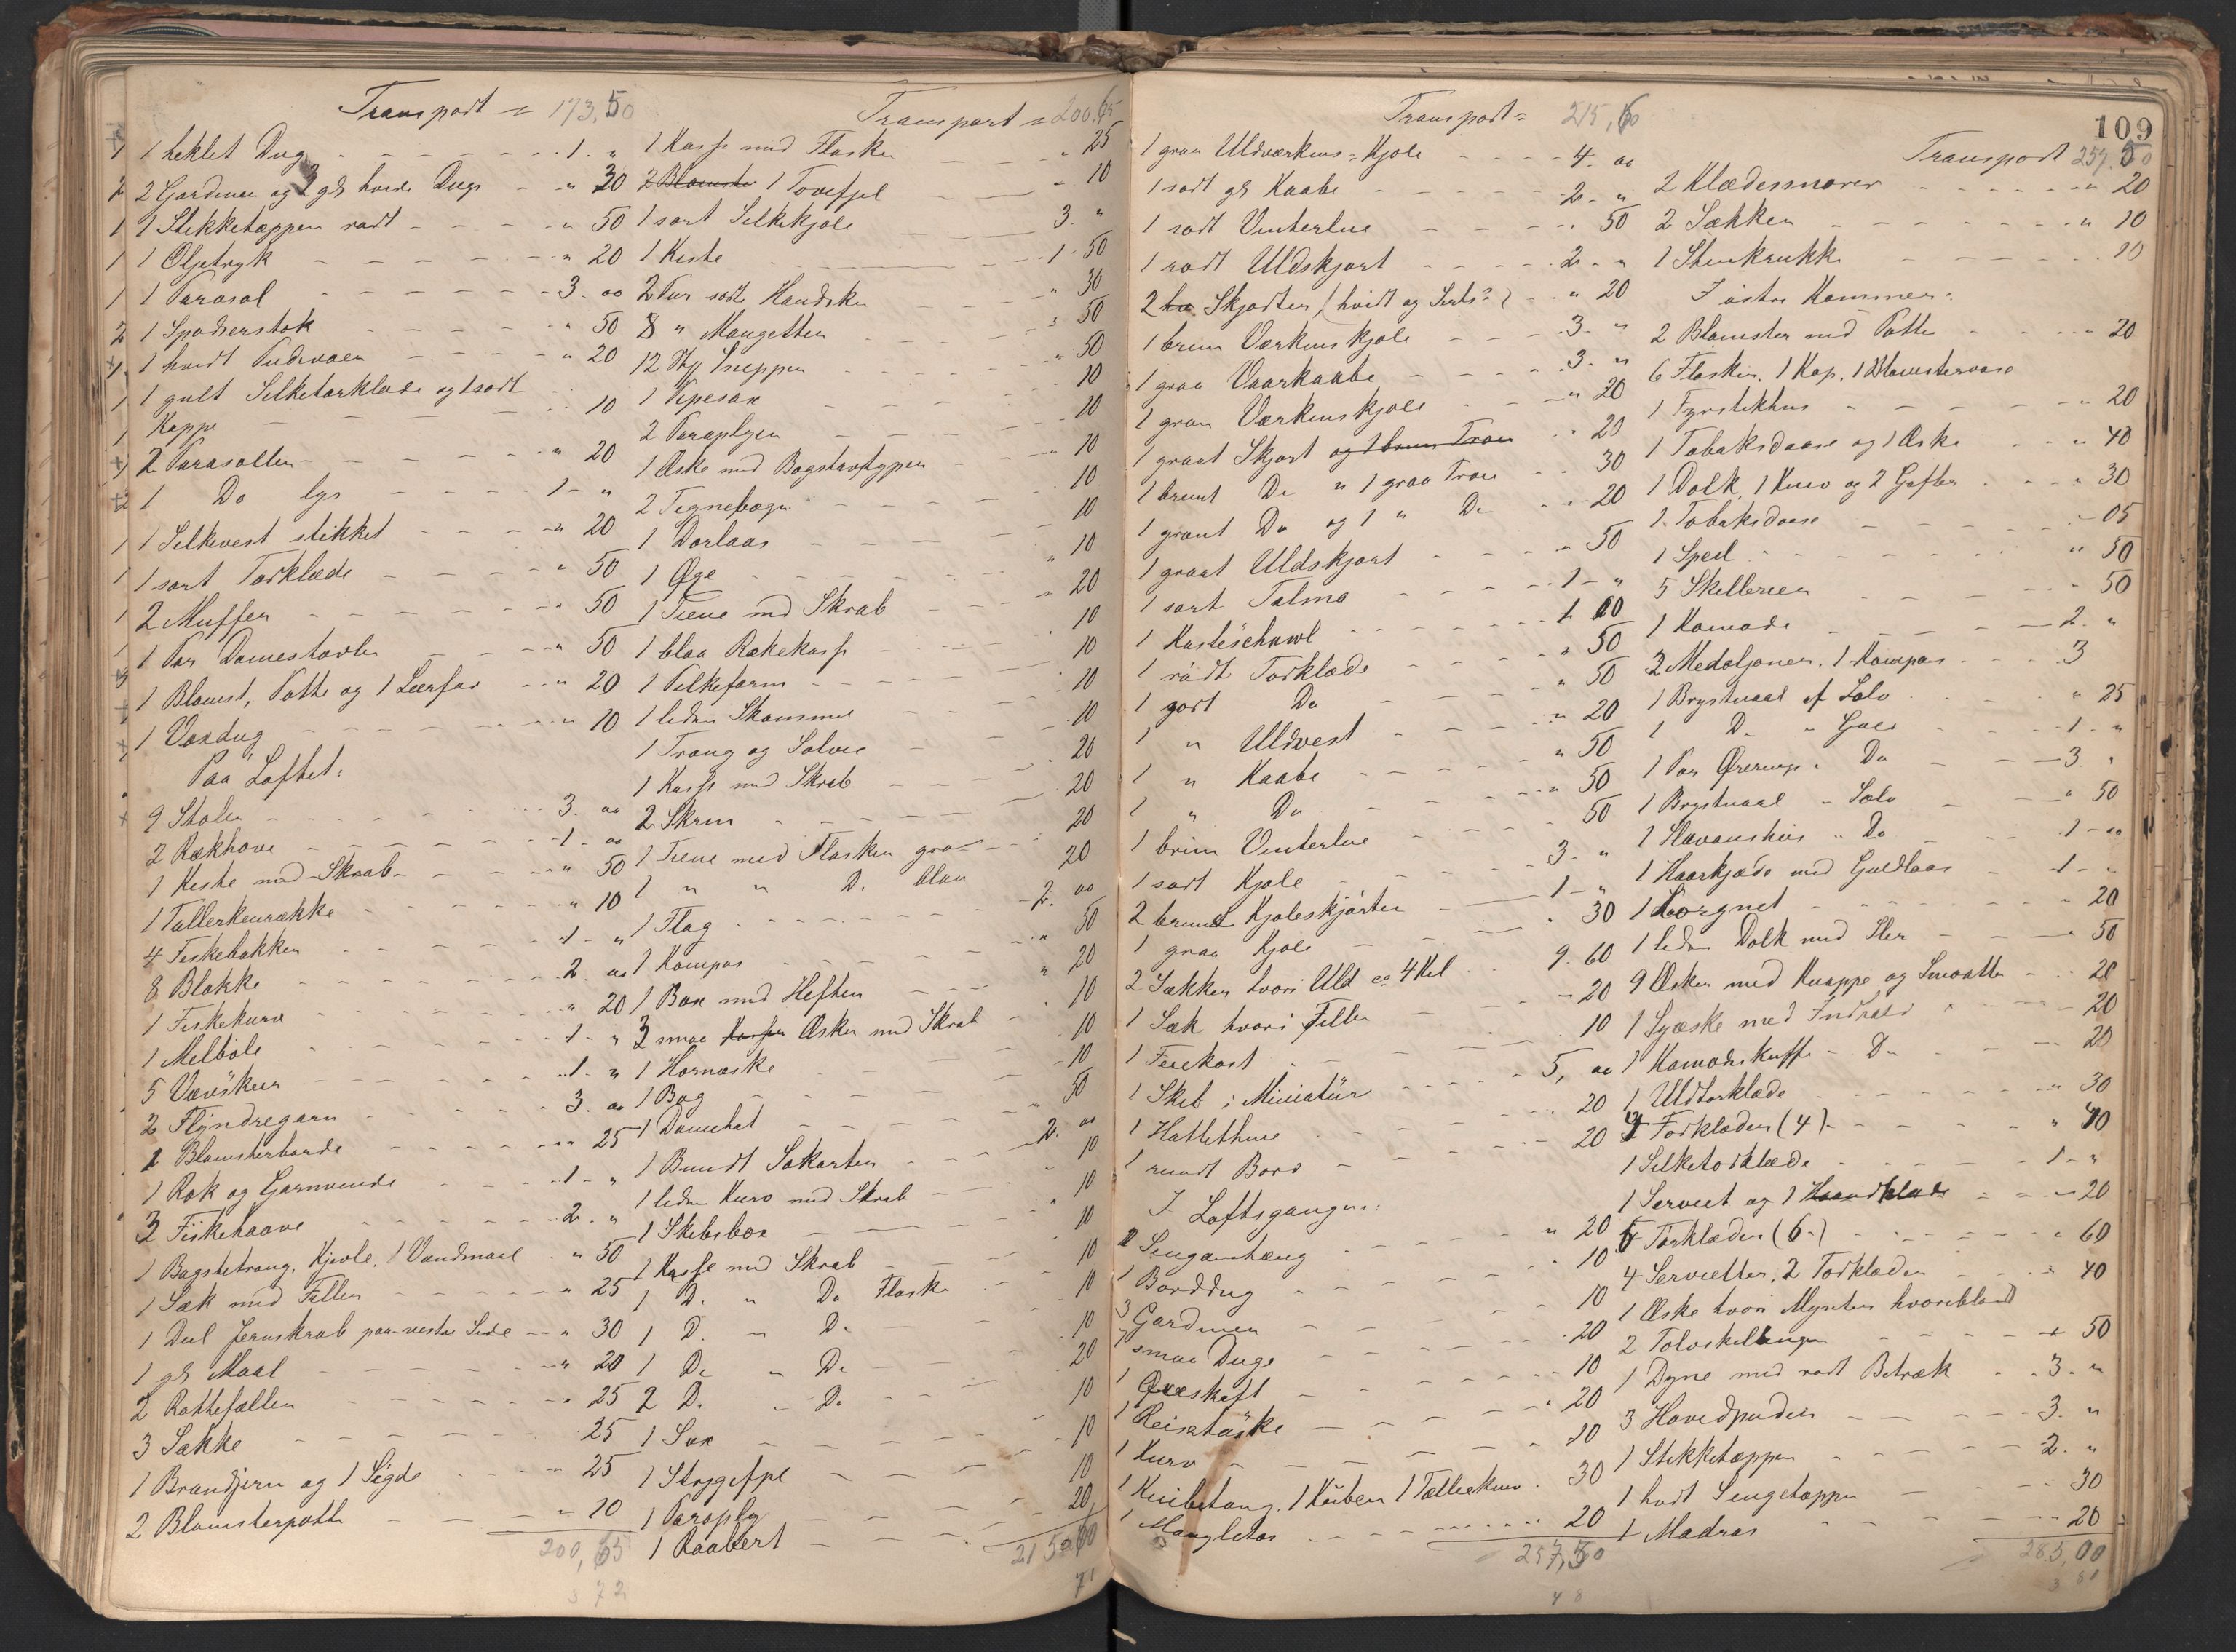 Transport = 173,50
1 heklet Dug - - 1. "
2 Gardiner og 2 gl hvide Duge - " 20
1 Stikketæppe rødt - - " 50
1 Oljetryk - - " 20
1 Parasol - - 3. 00
1 Spadserstok - - " 50
1 hvidt Pudevaer - - " 20
1 gult Silketørklæde og 1 sort
Kappe - - " 10
2 Parasoller - - " 20
1 Do lys - - 1 - "
1 Silkevest stikket - - " 20
1 sort Tørklæde - - " 50
2 Muffer - - " 50
1 Par Damestøvler - - " 50
1 Blomst, Potte og 1 Lærfad - - " 20
1 Voxdug - - " 10
Paa Loftet:
9 Stoler - - 3. 00
2 Rækhove - - 1. 00
1 Kiste med Skrab - - " 50
1 Tallerkenrække - - " 10
4 Fiskebakker - - 1 - "
8 Blakke - - 2. 00
1 Fiskekurv - - " 20
1 Melböle - - 1 - "
5 Vævskeer - - 1. "
2 Flyndregarn - - 3. 00
1 Blomsterborde - - " 25
1 Rok og Garnvinde - - 1 - "
3 Fiskehaave - - 2. "
1 Bagstetraug, Kjevle, 1 Vandmael " 50
1 Sæk med Filler - - " 25
1 Deel Jernskrab paa vestre Side - " 30
1 gl Maal - - " 20
2 Rottefælder - - " 25
3 Sække - - 25
1 Brandjern og 1 Sigde - - " 25
2 Blomsterpotter - - " 10
200,65
372
Transport = 200,65
1 Kasse med Flasker - - " 25
2 Blomster 1 Tovefjel - - " 10
1 sort Silkekjole - - 3. "
1 Kiste - - 1. 50
2 Par sorte Handsker - - " 30
8 " Mangetter - - " 50
12 Stk Snipper - - " 50
1 Vipesax - - 10
2 Paraplyer - - 10
1 Æske med Bogstavtyper - - " 10
2 Tegnebøger - - 10
1 Dørlaas - - 10
1 Øxe - - " 10
1 Tiene med Skrab - - " 20
1 blaa Rækekasse - - 10
1 Pilkeform - - 10
1 liden Skammel - - 10
1 Traug og Solvie - - 10
1 Kasse med Skrab - - 20
2 Skrin - - 20
1 Tiene med Flasker graa - - 20
1 " " D. blaa - - 20
1 Flag - - 2. 00
1 Kompas - - " 50
1 Box med Hefter - - " 20
3 smaa Kasser Æsker med Skrab - 10
1 Hornæske - - 10
1 Bog - - 10
1 Damehat - - " 50
1 Bundt Søkarter - - 2. 00
1 liden Kurv med Skrab - - 10
1 Skibsbox - - " 10
1 Kasse med Skrab - - 10
1 D. " Do Flaske - - 10
1 D. " D. - - 10
1 D. " D. - - 10
2 D. " D. - - 20
1 Sax - - 10
1 Stryggefjel - - 10
1 Paraply - - 10
1 Raabert - - 20
215,60
71
Transport = 215,60
1 graa Uldværkens=Kjole - - 4. 00
1 sort gl Kaabe - - 2. "
1 sort Vinterlue - - " 50
1 rødt Uldskjørt - - 2. "
2 Skjørter (hvidt og Sirts) - - " 20
1 brun Værkenskjole - - 3. "
1 graa Vaarkaabe - - 3. "
1 graa Værkenskjole - - " 20
1 graat Skjørt og 1 brun Trøie - - 20
1 brunt Do " 1 graa Trøie - - 30
1 graat Do og 1 " Do - - 20
1 graat Uldskjørt - - " 50
1 sort Talma - - 1 - "
1 Kasteschawl - - 1 00
1 rødt Tørklæde - - " 50
1 sort Do - - " 50
1 " Uldvest - - " 20
1 " Kaabe - - " 50
1 " Do - - " 50
1 brun Vinterlue - - 50
1 sort Kjole - - 3. "
2 brune Kjoleskjørter - - 1 - "
1 graa Kjole - - " 30
2 Sækker hvori Uld ca 4 Kil - - 9. 60
1 Sæk hvori Filler - - 20
1 Feiekost - - 10
1 Skib i Miniatür - - 5, 00
1 Hattethine - - 20
1 rundt Bord - - 20
I Loftsgangen:
2 Sengomhæng - - " 20
1 Borddug - - 10
3 Gardiner - - 10
7 smaa Duge - - 20
1 Øxeskaft - - 10
1 Reisetaske - - " 20
1 Kurv - - 10
1 Knibetang, 1 Kniben 1 Tælleknev " 30
1 Mangletøi - - 20
257,50
48
109
Transport 257.50
2 Klædessnorer - - " 20
2 Sækker - - " 10
1 Stenkrukke - - 10
I østre Kammer:
2 Blomster med Potter - - " 20
6 Flasker, 1 Kop, 1 Blomstervase
1 Fyrstikhus - - " 20
1 Tobaksdaase og 1 Æske - - " 40
1 Dolk, 1 Kniv og 2 Gafler - - " 30
1 Tobaksdaase - - " 05
1 Speil - - " 50
5 Skillerier - - " 50
1 Komode - - 2. "
2 Medaljoner, 1 Kompas - - 3
1 Brystnaal af Sølv - - " 25
1 D. " Guld - - 1. "
1 Par Øreringe " Do - - 3. "
1 Brystnaal " Sølv - - " 50
1 Hovanshus " Do - - 1 - 00
1 Haarkjæde med Guldlaas - - 1 - "
1 Lorgnet - - " 20
1 liden Dolk med Slir - - 50
9 Æsker med Knappe og Smaatter - - 20
1 Syæske med Indhold - - 20
1 Komodeskuffe - D. - - 20
1 Uldtørklæde - - " 30
4 Tørklæder (4) - - " 40
1 Silketørklæde - - 1 - "
1 Serviet og 1 Haandklæde - - " 20
6 Tørklæder (6) - - " 60
4 Servietter, 2 Tørklæder - - " 40
1 Æske hvori Mynter hvoriblandt
2 Tolvskillinger - - " 50
1 Dyne med rødt Betræk - - 3. "
3 Hovedpuder - - 3. "
1 Stikketæppe - - 2. "
1 hvidt Sengetæppe - - 30
1 Madras - - " 20
285,00
3 81